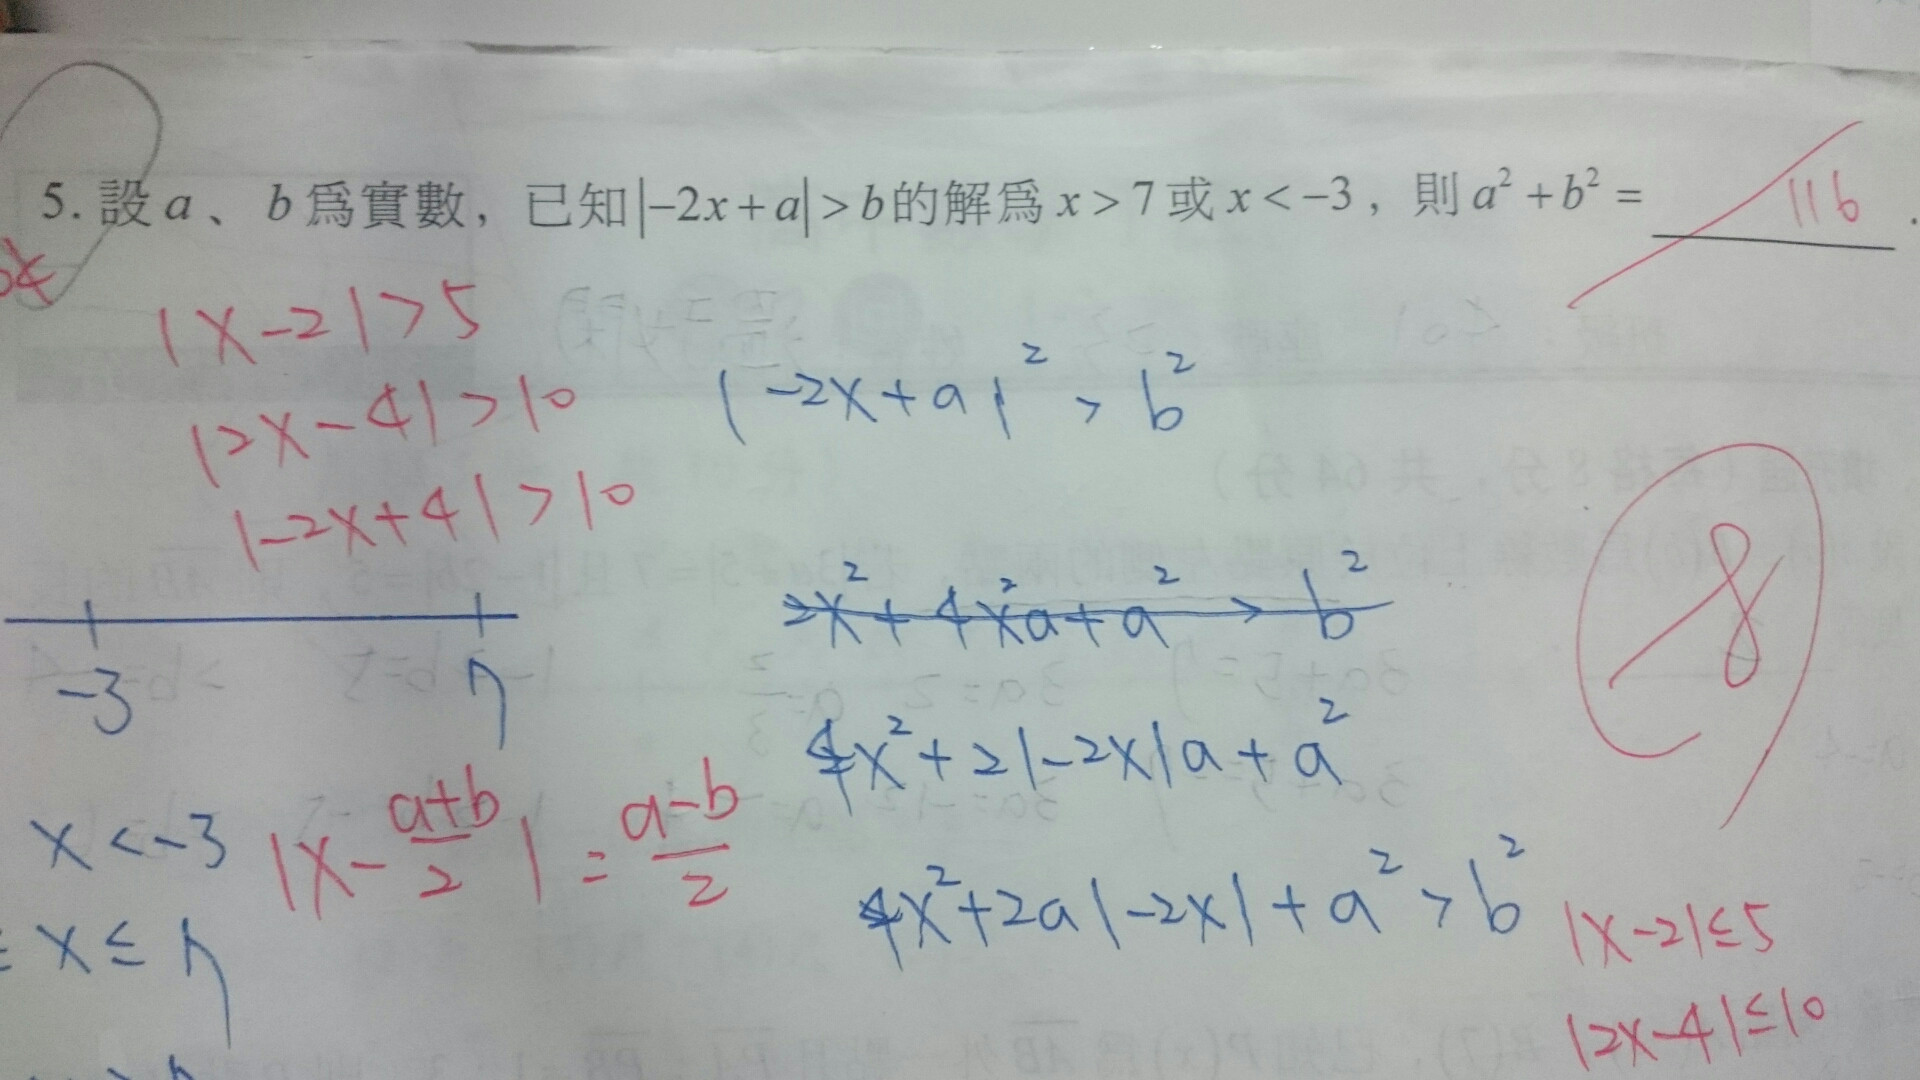 5. 設 a、b 為實數，已知 |−2x+a| > b 的解為 x > 7 或 x < −3，則 a² + b² = 116.
|x-2|>5
|2x-4|>10
|-2x+4|>10
|-2x+a|²>b²
2x²+4x²a+a²>b²
-3 7
4x²+2|-2x|a+a²
x<-3
|x-\frac{a+b}{2}|=\frac{a-b}{2}
4x²+2a|-2x|+a²>b²
x≤7
-8
|x-2|≤5
|2x-4|≤10